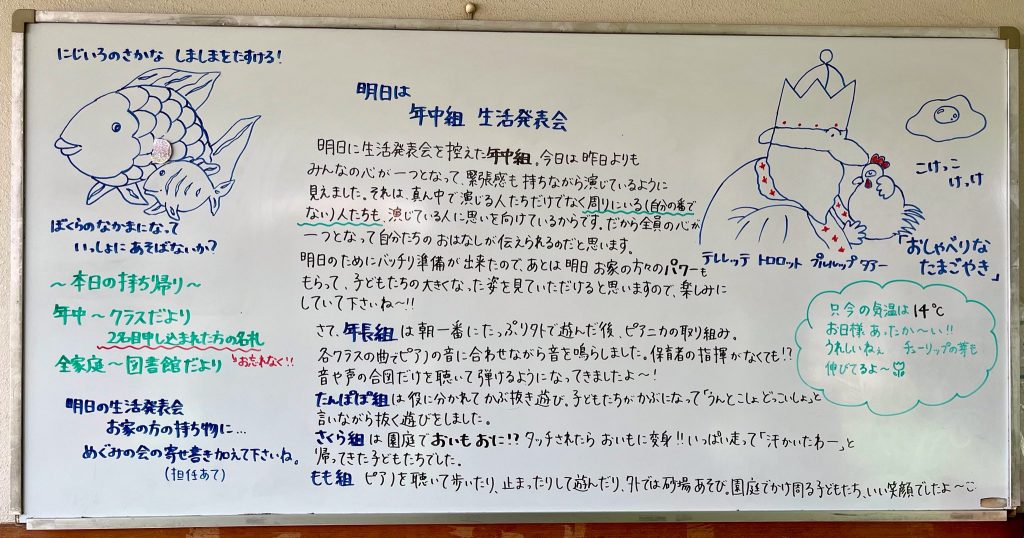 にじいろのさかな しましまをたすける!
ぼくらのなかまになって
いっしょに あそばないか?
〜本日の持ち帰り〜
年中〜クラスだより
2名目申し込まれた方の名札
↳お忘れなく!!
全家庭〜図書館だより
明日の生活発表会
お家の方の持ち物に…
めぐみの会の寄せ書き加えて下さいね。
(担任あて)
明日は
年中組 生活発表会
明日に生活発表会を控えた年中組。今日は昨日よりも
みんなの心が一つとなって、緊張感も持ちながら演じているように
見えました。それは、真ん中で演じる人たちだけでなく周りにいる(自分の番で
ない)人たちも、演じている人に思いを向けているからです。だから全員の心が
一つとなって自分たちのおはなしが伝えられるのだと思います。
明日のためにバッチリ準備が出来たので、あとは明日お家の方々のパワーも
もらって、子どもたちの大きくなった姿を見ていただけると思いますので、楽しみに
していて下さいね〜!!
さて、年長組は朝一番にたっぷり外で遊んだ後、ピアニカの取り組み。
各クラスの曲でピアノの音に合わせながら音を鳴らしました。保育者の指揮がなくても!?
音や声の合図だけを聴いて弾けるようになってきましたよ〜!
たんぽぽ組は役に分かれてかぶ抜き遊び。子どもたちがかぶになって「うんとこしょどっこいしょ」と
言いながら抜く遊びをしました。
さくら組は園庭でおいもおに!?タッチされたらおいもに変身!!いっぱい走って「汗かいたわー」と
帰ってきた子どもたちでした。
もも組 ピアノを聴いて歩いたり、止まったりして遊んだり、外では砂場あそび。園庭でかけ周る子どもたち、いい笑顔でしたよ〜
こけっこ
けっけ
テレレッテ トロロット プルルップ タター
「おしゃべりな
たまごやき」
只今の気温は14℃
お日様あったか〜い!!
うれしいねぇ チューリップの芽も
伸びてるよ〜